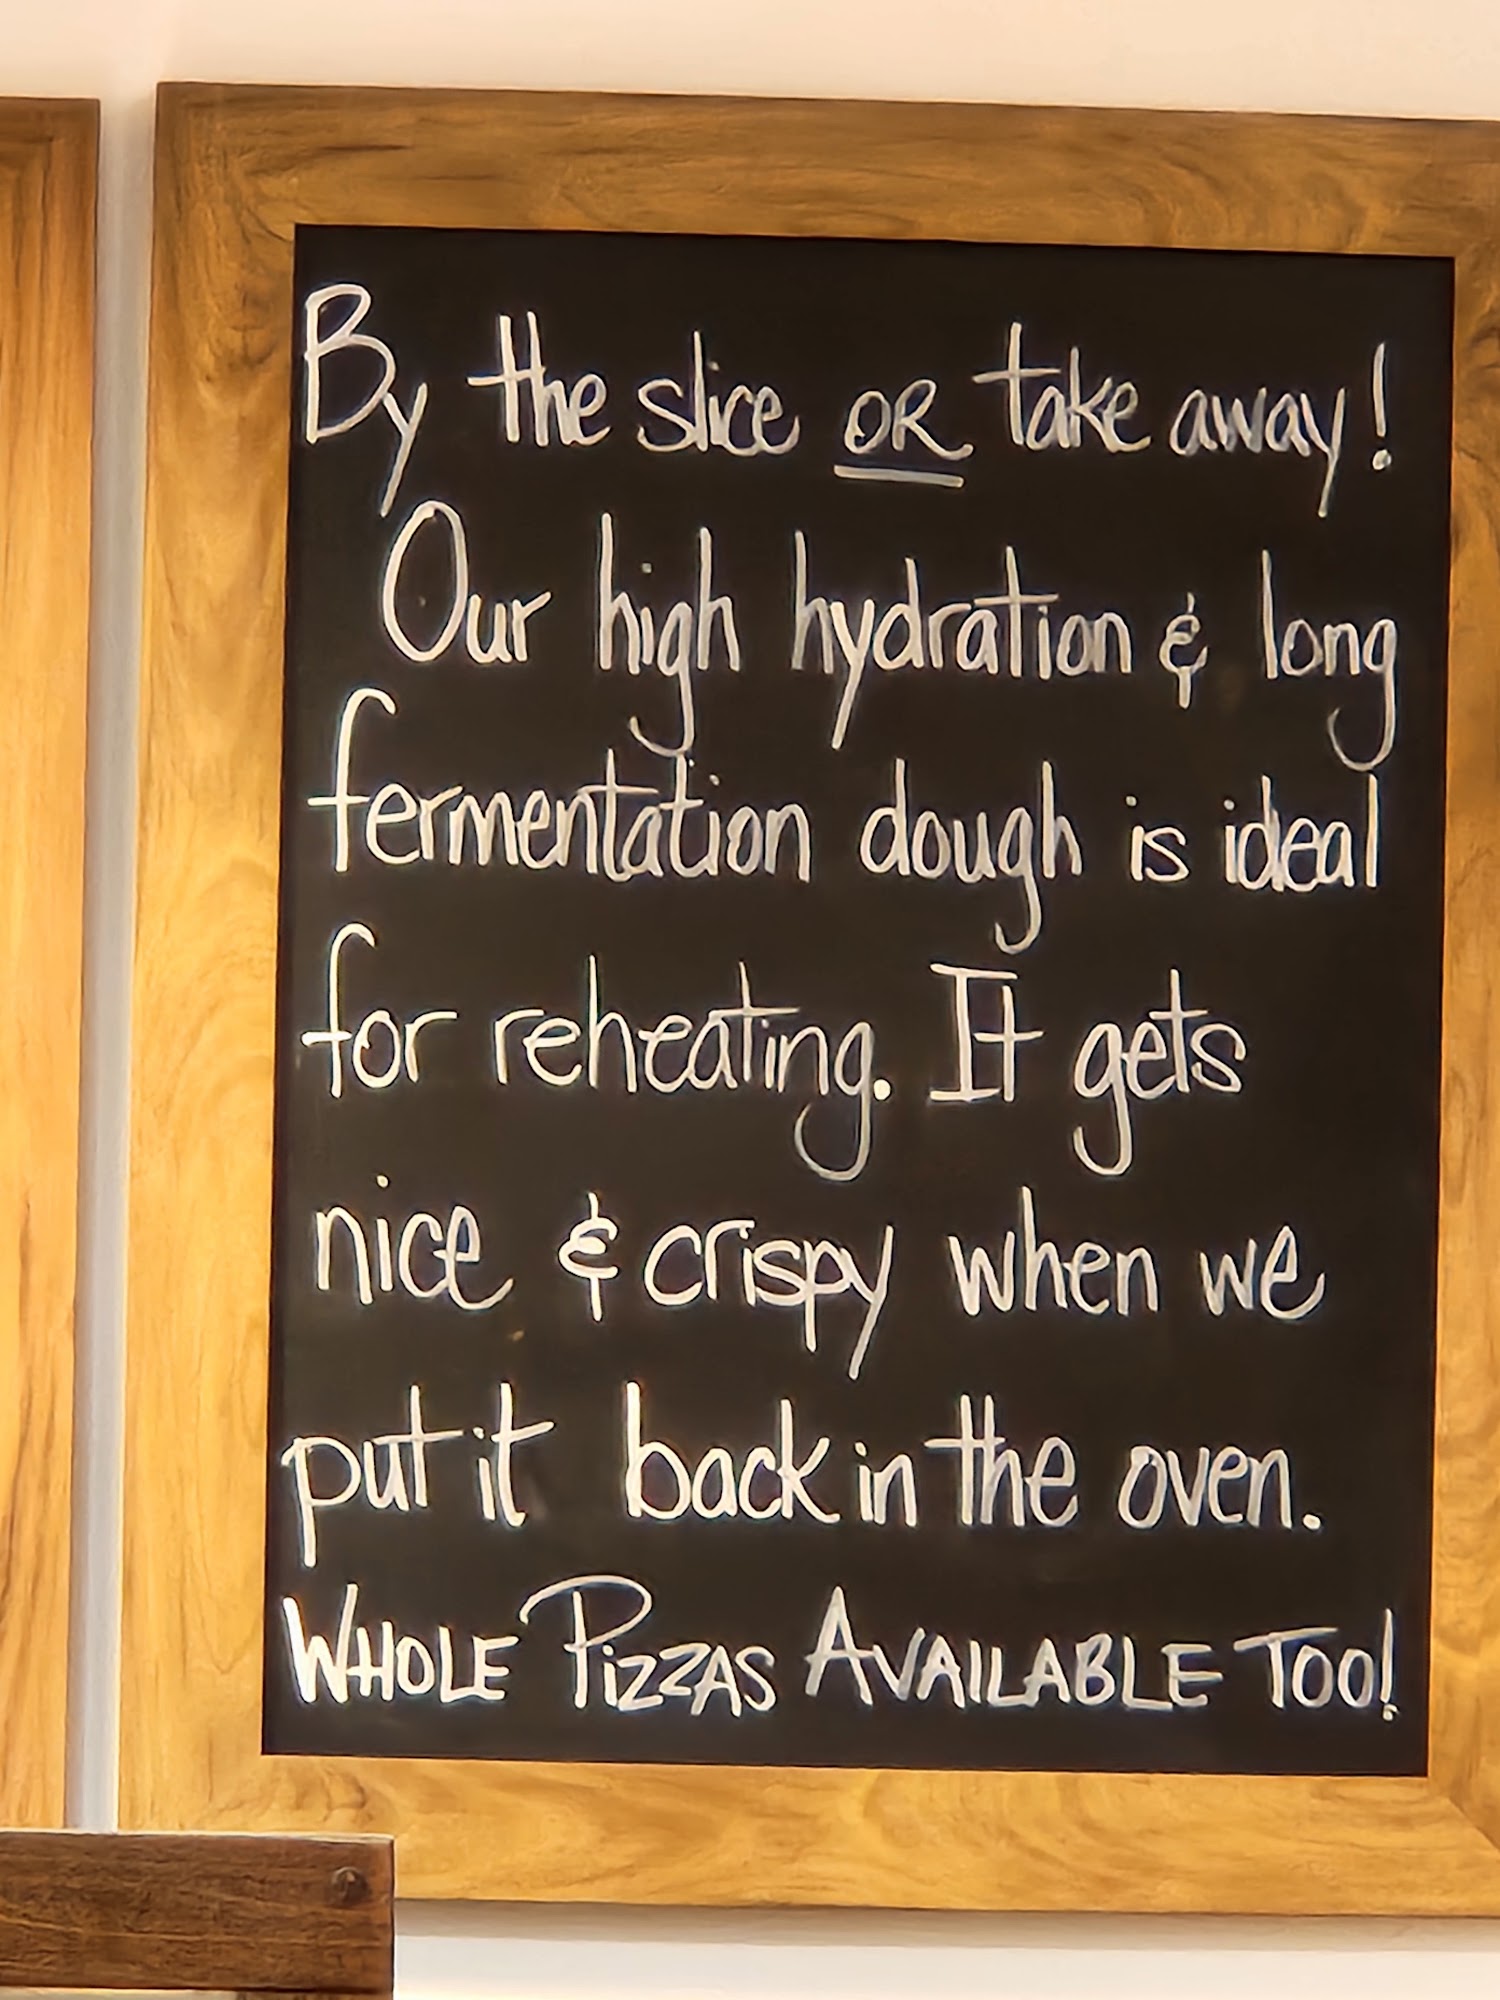 By the slice OR take away!
Our high hydration & long
fermentation dough is ideal
for reheating. It gets
nice & crispy when we
put it back in the oven.
WHOLE PIZZAS AVAILABLE TOO!